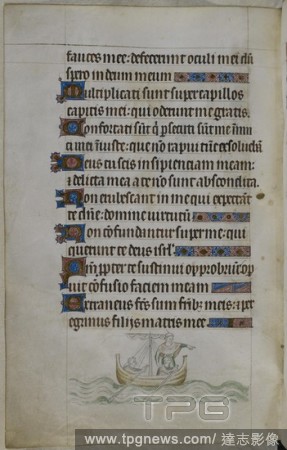 fauces mee: defecerunt oculi mei dū
spero in deum meum
Multiplicati sunt super capillos
capitis mei: qui oderunt me gratis.
Confortati sūt q̄ psecuti sūt me īimi
ci mei iniuste: que nō rapui tūc exsoluebā
Deus tu scis insipientiam meam:
⁊ delicta mea a te nō sunt abscondita.
Non erubescant in me qui expectāt
te dn̄e: domine uirtutū
Non cōfundantur super me: qui
querunt te deus isrl̄.
Qm̄ propter te sustinui opprobriū: op
uit cōfusio faciem meam
Extraneus fc̄s sum frīb; meis: ⁊ per
egrinus filijs matris mee.
TPG
www.tpgnews.com/ 達志影像